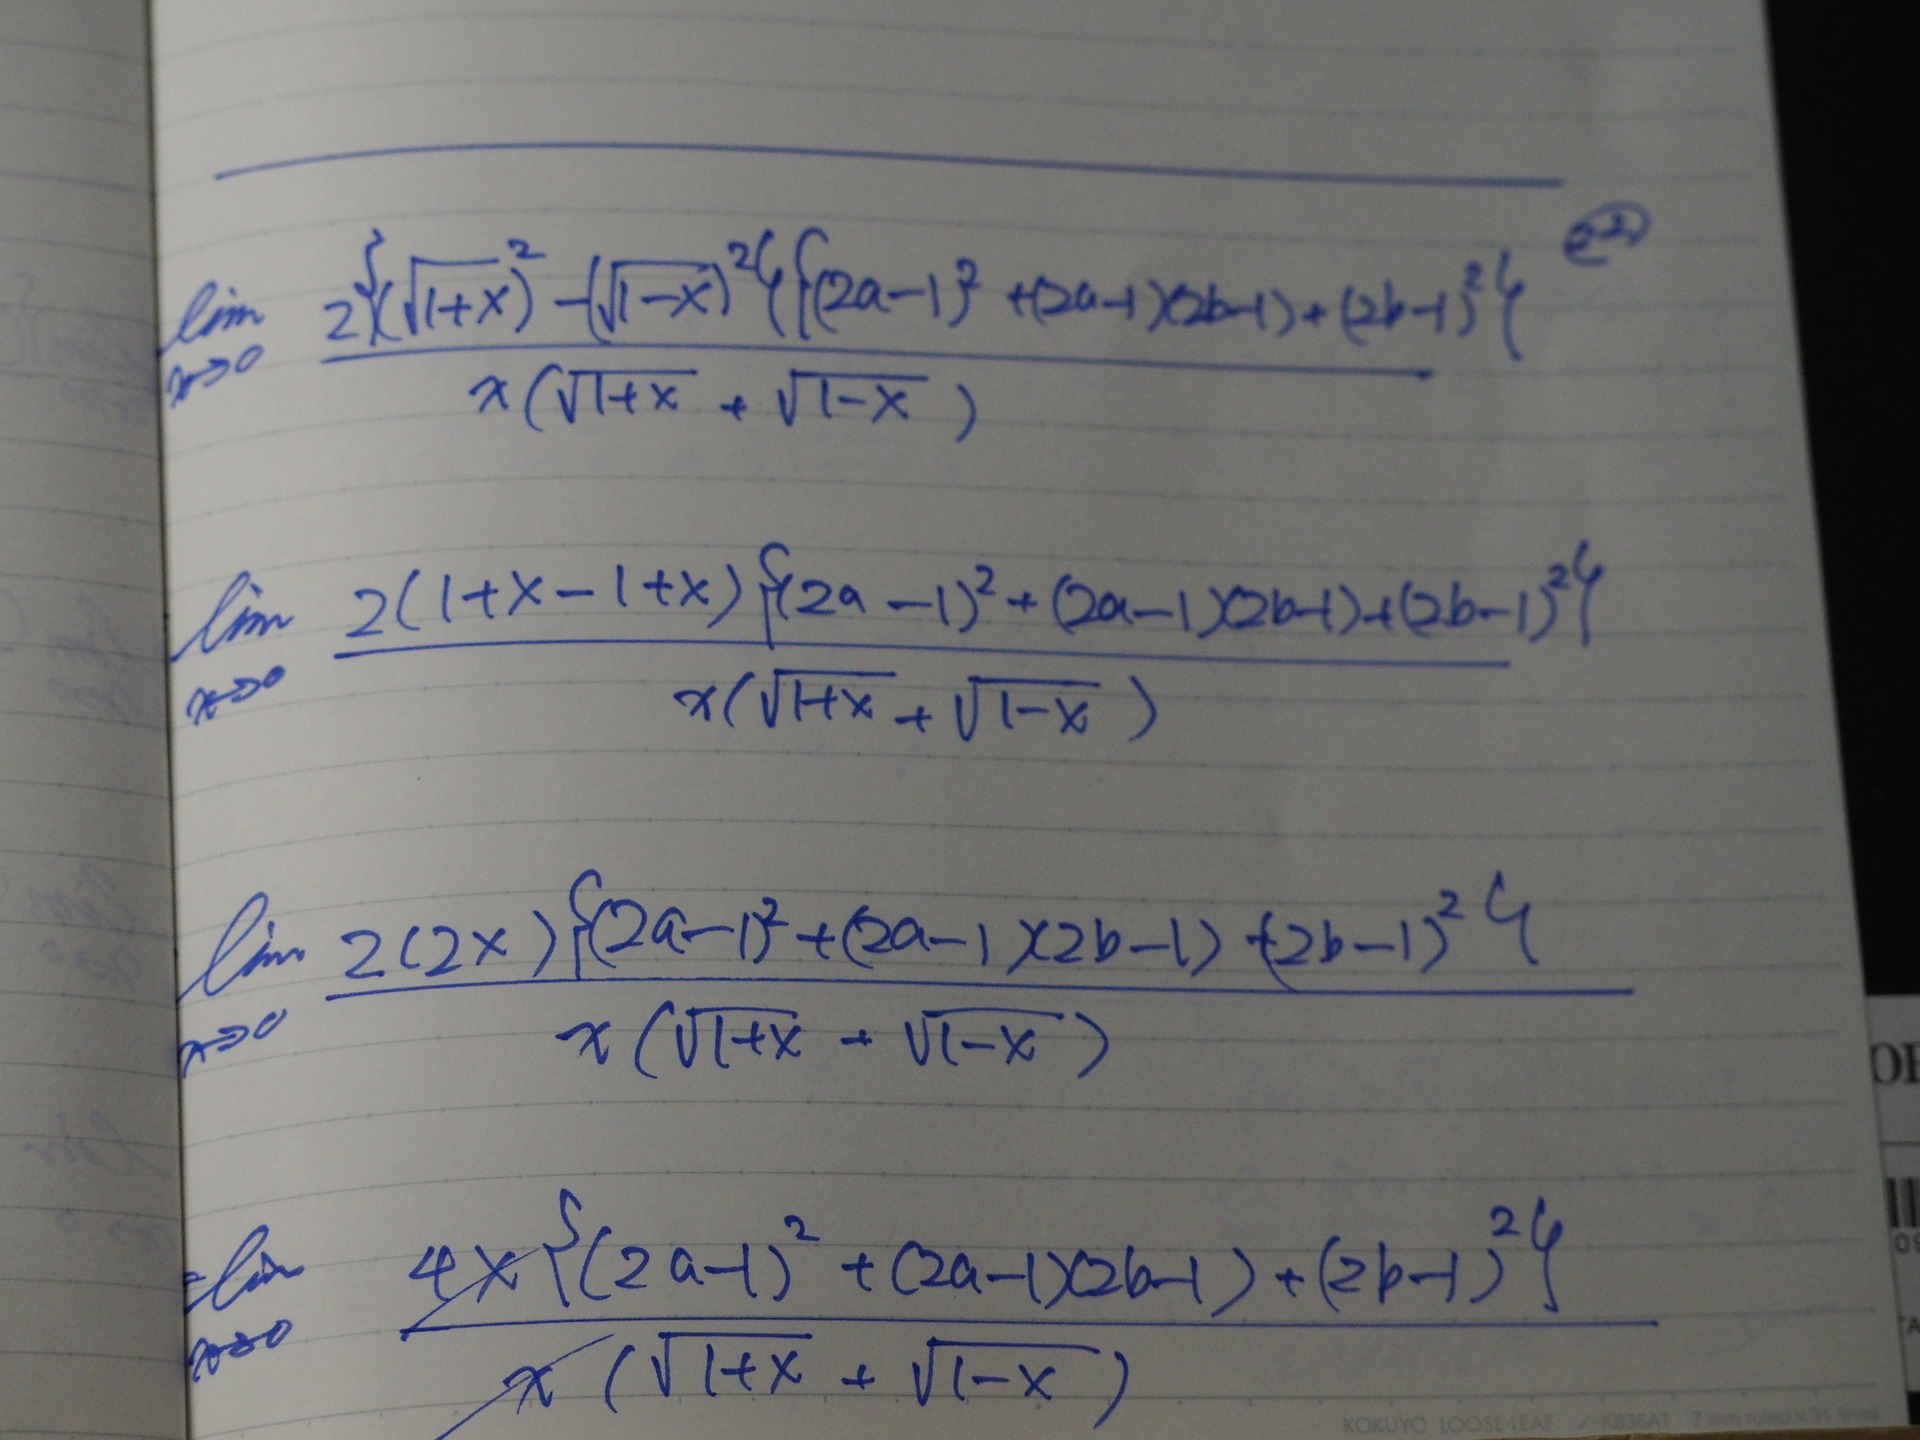 2²
lim x→0 2{(√1+x)² - (√1-x)²}{(2a-1)² + (2a-1)(2b-1) + (2b-1)²}
x(√1+x + √1-x)
lim x→0 2(1+x-1+x){(2a-1)² + (2a-1)(2b-1) + (2b-1)²}
x(√1+x + √1-x)
lim x→0 2(2x){(2a-1)² + (2a-1)(2b-1) + (2b-1)²}
x(√1+x + √1-x)
=lim x→0 4x{(2a-1)² + (2a-1)(2b-1) + (2b-1)²}
x(√1+x + √1-x)
KOKUYO LOOSE-LEAF ノ-K836AT 7 mm ruled×31 lines